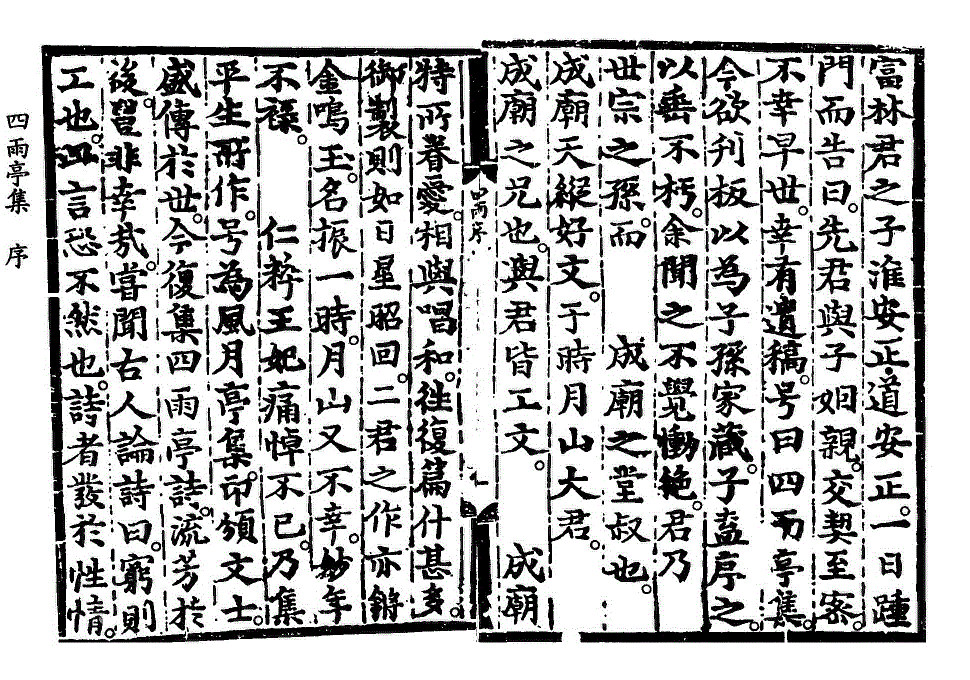 富林君之子淮安正道安正。一日踵
門而告曰。先君與子姻親。交契至密。
不幸早世。幸有遺稿。号曰四雨亭集。
今欲刊板以為子孫家藏。子盍序之。
以垂不朽。余聞之不覺慟絶。君乃
世宗之孫。而 成廟之堂叔也。
成廟天縱好文。于時月山大君。
成廟之兄也。與君皆工文。 成廟
特所眷愛。相與唱和。往復篇什甚多。
御製則如日星昭回。二君之作亦鏘
金鳴玉。名振一時。月山又不幸。妙年
不祿。 仁粹王妃痛悼不已。乃集
平生所作。号為風月亭集。印頒文士。
盛傳於世。今復集四雨亭詩。流芳於
後。豈非幸哉。嘗聞古人論詩曰。窮則
工也。此言恐不然也。詩者發於性情。
四雨序
四雨亭集 序